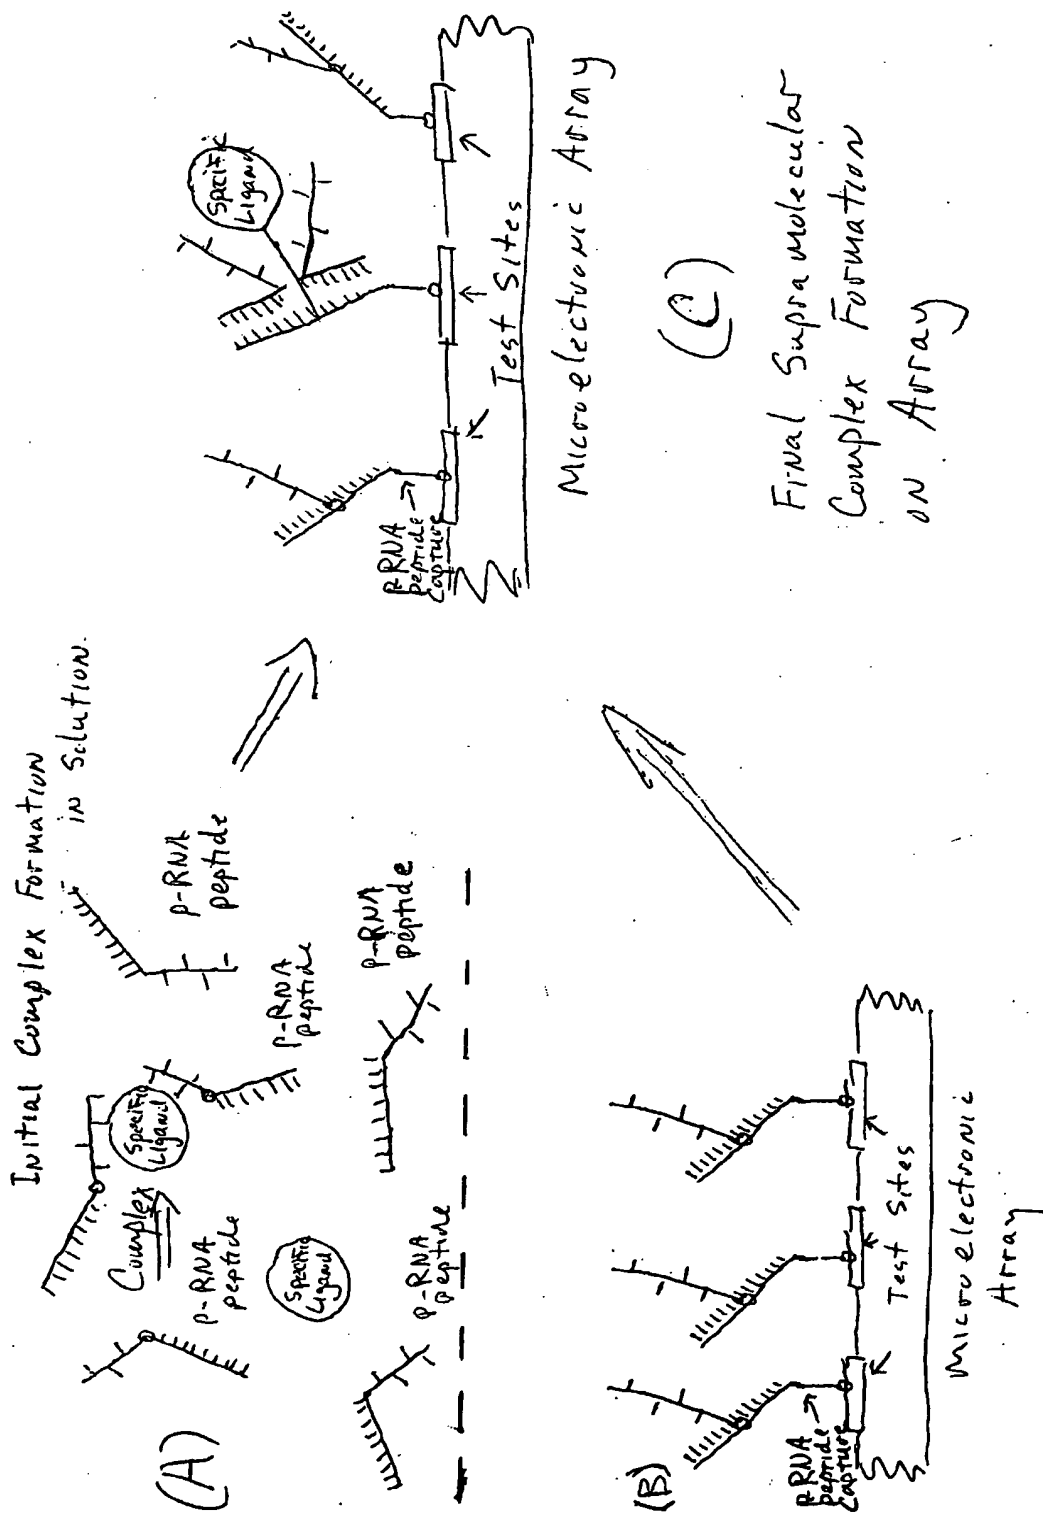 Initial Complex Formation
in Solution.
(A)
Complex
Specific
Ligand
p-RNA
peptide
p-RNA
peptide
p-RNA
peptide
Specific
Ligand
p-RNA
peptide
p-RNA
peptide
(B)
p-RNA
peptide
Capture
Test Sites
Microelectronic
Array
Specific
Ligand
p-RNA
peptide
Capture
Test Sites
Microelectronic Array
(C)
Final Supramolecular
Complex Formation
on Array